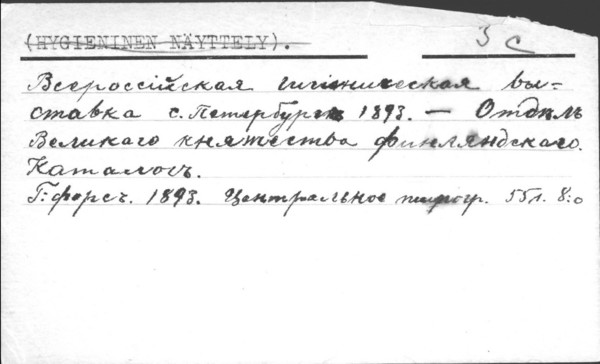 (HYGIENINEN NÄYTTELY). 3 C
Всероссійская гигіеническая вы-
ставка С. Петербургъ 1893. — Отдѣлъ
Великаго княжества финляндскаго.
Каталогъ.
Г:форсъ. 1893. Центральное типогр. 55 л. 8:o